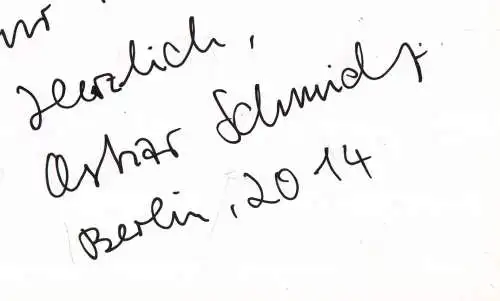 Herzlich,
Oskar Schmidt.
Berlin, 2014